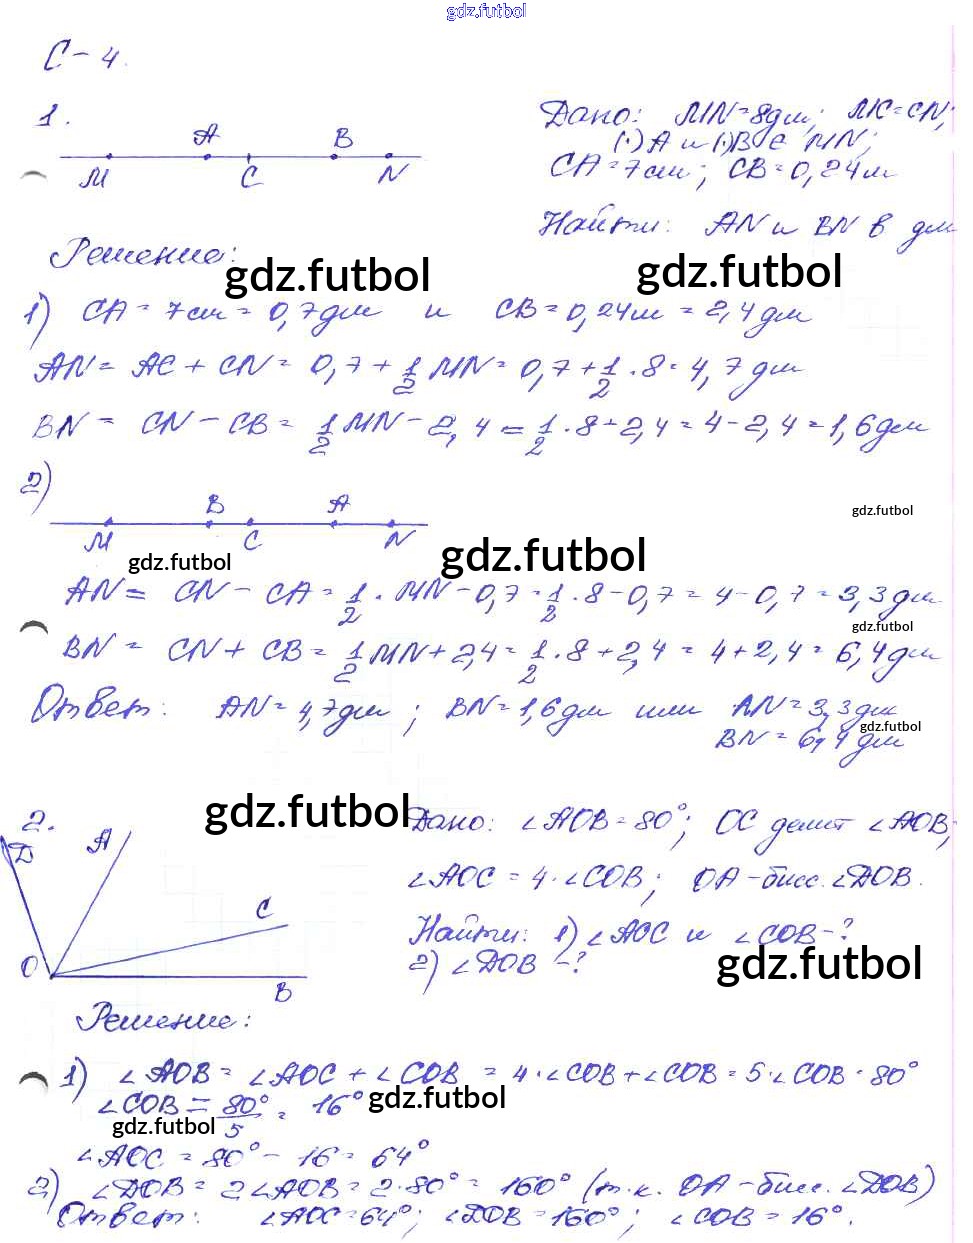 gdz.futbol
С-4.
1.
M A C B N
Дано: MN=8дм; MC=CN;
(·)A и (·)B ∈ MN;
CA=7см; CB=0,24м
Найти: AN и BN в дм
Решение:
gdz.futbol gdz.futbol
1) CA = 7см = 0,7дм и CB=0,24м = 2,4дм
AN = AC + CN = 0,7 + 1/2 MN = 0,7 + 1/2 · 8 = 4,7 дм
BN = CN - CB = 1/2 MN - 2,4 = 1/2 · 8 - 2,4 = 4 - 2,4 = 1,6дм
2)
M B C A N
gdz.futbol
gdz.futbol gdz.futbol
AN = CN - CA = 1/2 · MN - 0,7 = 1/2 · 8 - 0,7 = 4 - 0,7 = 3,3дм
gdz.futbol
BN = CN + CB = 1/2 MN + 2,4 = 1/2 · 8 + 2,4 = 4 + 2,4 = 6,4дм
Ответ: AN = 4,7дм ; BN = 1,6дм или AN = 3,3дм
gdz.futbol
BN = 6,4 дм
gdz.futbol
2.
D A C O B
Дано: ∠AOB = 80°; OC делит ∠AOB;
∠AOC = 4·∠COB; OA - бисс. ∠DOB.
Найти: 1) ∠AOC и ∠COB - ?
2) ∠DOB - ?
gdz.futbol
Решение:
1) ∠AOB = ∠AOC + ∠COB = 4·∠COB + ∠COB = 5·∠COB = 80°
∠COB = 80°/5 = 16°
gdz.futbol
gdz.futbol
∠AOC = 80° - 16 = 64°
2) ∠DOB = 2∠AOB = 2·80° = 160° (т.к. OA - бисс. ∠DOB)
Ответ: ∠AOC = 64°; ∠DOB = 160°; ∠COB = 16°.